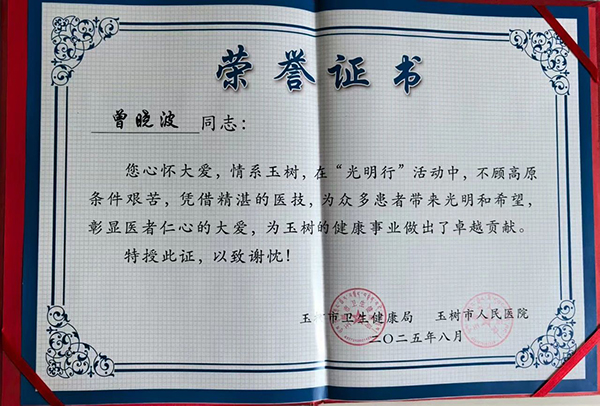 荣誉证书
曾晓波 同志：
您心怀大爱，情系玉树，在“光明行”活动中，不顾高原
条件艰苦，凭借精湛的医技，为众多患者带来光明和希望，
彰显医者仁心的大爱，为玉树的健康事业做出了卓越贡献。
特授此证，以致谢忱！
玉树市卫生健康局 玉树市人民医院
二〇二五年八月